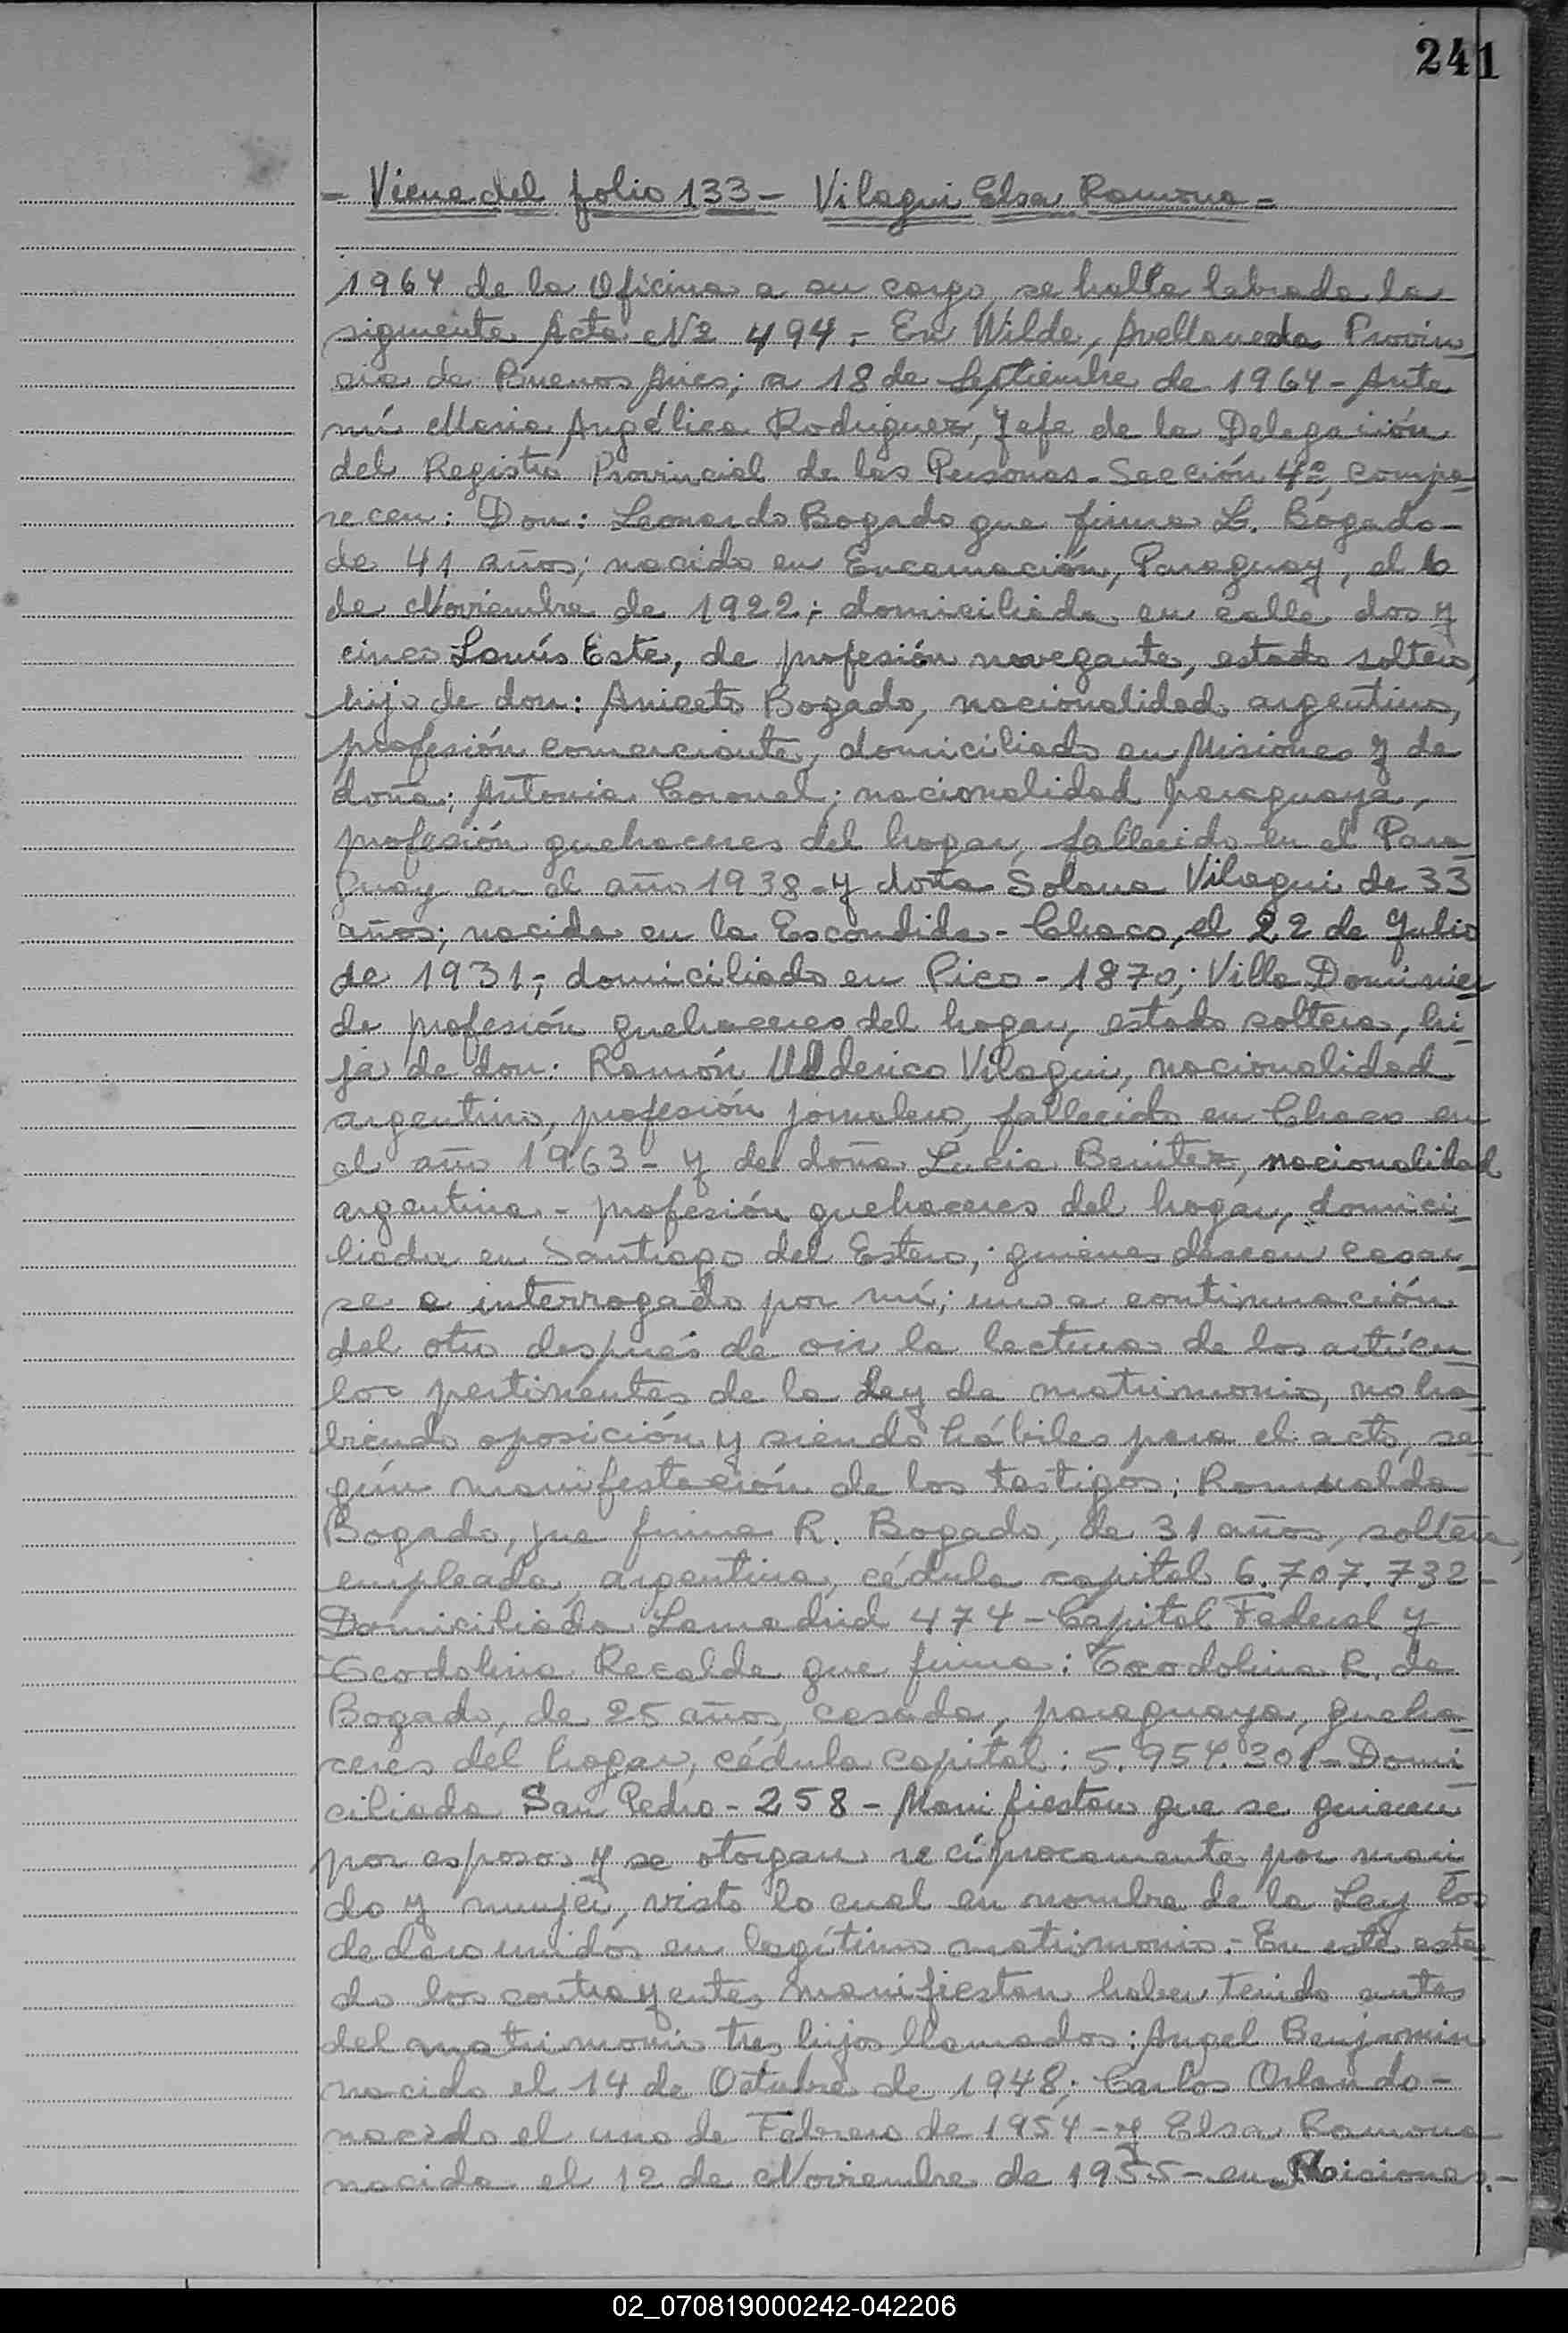 241
- Viene del folio 133 - Vilagui Elsa Ramona -
1964 de la Oficina a su cargo, se halla labrada la
siguiente Acta Nº 494.- En Wilde, Avellaneda Provin
cia de Buenos Aires; a 18 de Septiembre de 1964 - Ante
mí Maria Angélica Rodriguez, Jefe de la Delegación
del Registro Provincial de las Personas - Sección 4ª, compa-
recen: Don: Leonardo Bogado que firma L. Bogado -
de 41 años; nacido en Encarnación, Paraguay, el 6
de Noviembre de 1922; domiciliado en calle dos y
cinco Lanús Este, de profesión navegante, estado soltero,
hijo de don: Aniceto Bogado, nacionalidad argentino,
profesión comerciante, domiciliado en Misiones y de
doña: Antonia Coronel; nacionalidad paraguaya,
profesión quehaceres del hogar, fallecido en el Para
guay en el año 1938 - y doña Solana Vilagui de 33
años; nacida en la Escondida - Chaco, el 22 de Julio
de 1931; domiciliado en Pico - 1870; Villa Dominico
de profesión quehaceres del hogar, estado soltera, hi-
ja de don: Ramón Ulderico Vilagui, nacionalidad
argentino, profesión jornalero, fallecido en Chaco en
el año 1963 - y de doña Lucia Benitez, nacionalidad
argentina - profesión quehaceres del hogar, domici-
liada en Santiago del Estero; quienes desean casar-
se e interrogado por mí; uno a continuación
del otro después de oir la lectura de los artícu-
los pertinentes de la Ley de matrimonio, no ha-
biendo oposición y siendo hábiles para el acto, se-
gún manifestación de los testigos; Romualdo
Bogado, que firma R. Bogado, de 31 años, soltero,
empleado, argentino, cédula capital 6.707.732 -
Domiciliado Lamadrid 474 - Capital Federal y
Teodolina Recalde que firma: Teodolina R. de
Bogado, de 25 años, casada, paraguaya, queha-
ceres del hogar, cédula capital: 5.954.301 - Domi
ciliada San Pedro - 258 - Manifiestan que se quieren
por esposos y se otorgan recíprocamente por mari
do y mujer, visto lo cual en nombre de la Ley los
declaro unidos en legítimo matrimonio.- En este esta
do los contrayentes manifiestan haber tenido antes
del matrimonio tres hijos llamados: Angel Benjamin
nacido el 14 de Octubre de 1948; Carlos Orlando -
nacido el uno de Febrero de 1954 - y Elsa Ramona
nacida el 12 de Noviembre de 1955 - en Misiones.-
02_070819000242-042206